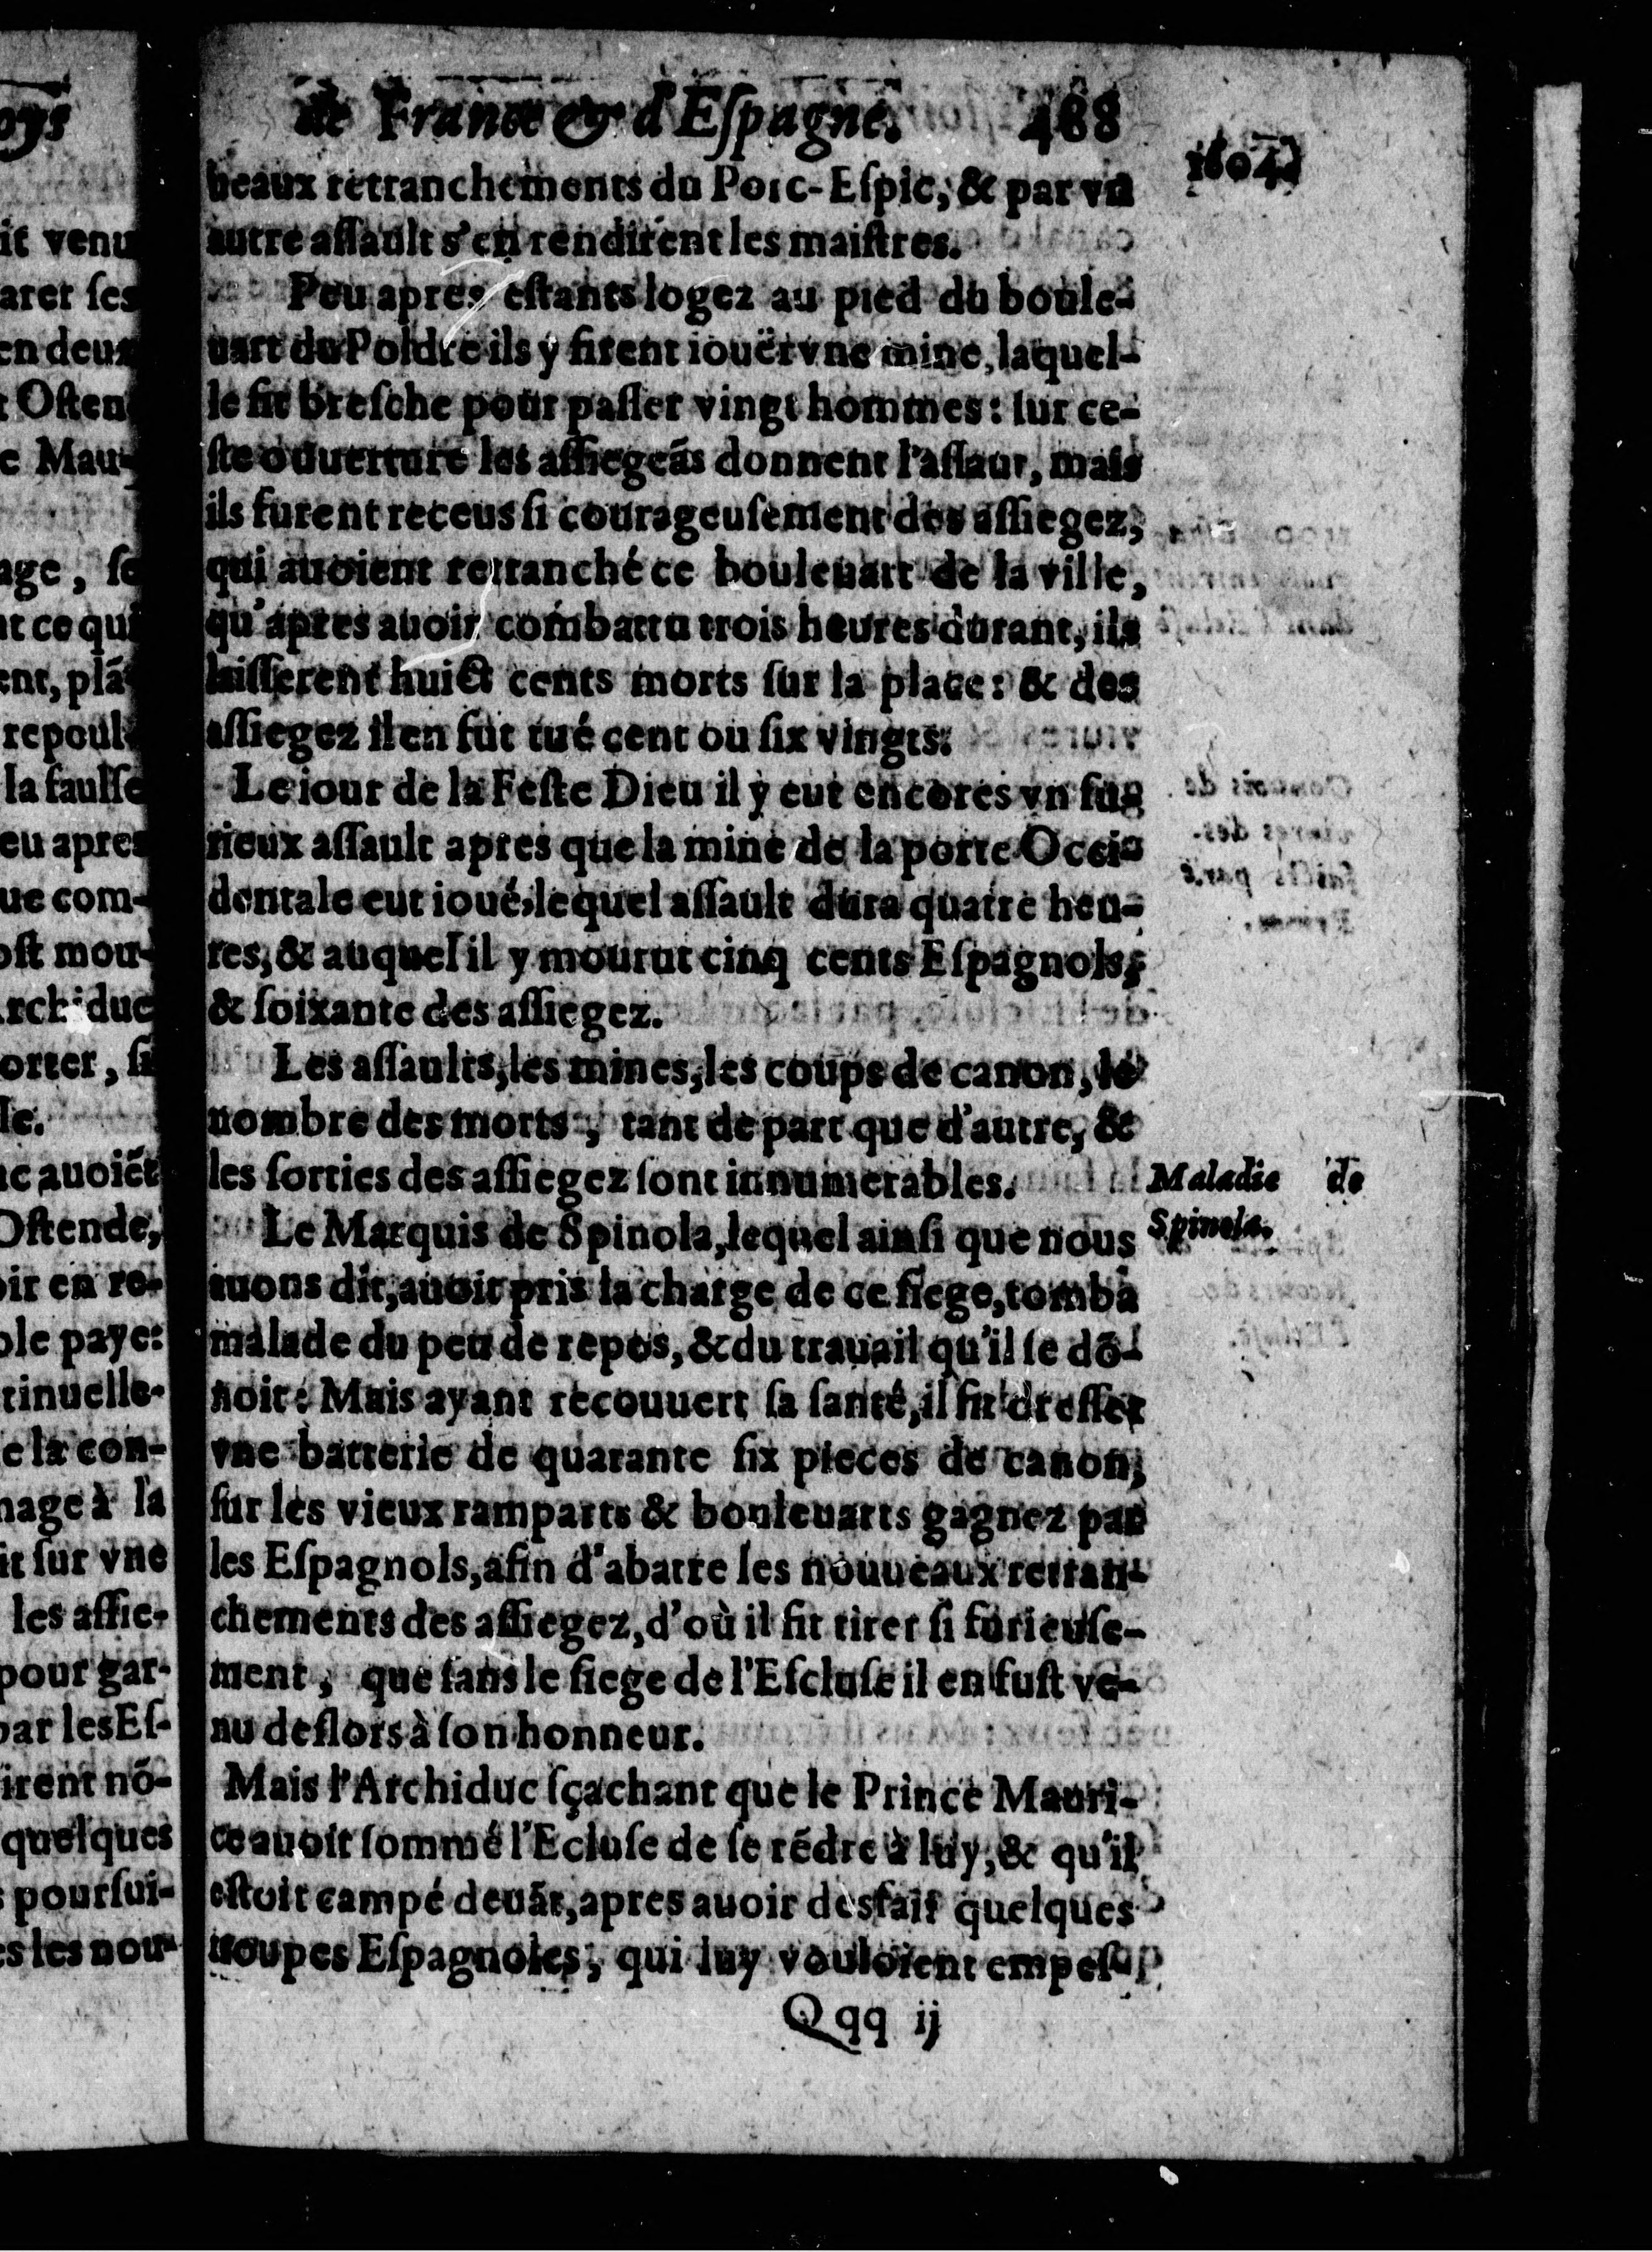 de France & d'Eſpagne. 488
1604.
ueaux retranchements du Porc-Eſpic, & par vn
autre aſſault s'en rendirent les maiſtres.
Peu apres eſtants logez au pied du boule-
uart du Poldre ils y firent iouër vne mine, laquel-
le fit breſche pour paſſer vingt hommes: ſur ce-
ſte ouuerture les aſſiegeãs donnent l'aſſaut, mais
ils furent receus ſi courageuſement des aſſiegez,
qui auoient retranché ce bouleuart de la ville,
qu'apres auoir combattu trois heures durant, ils
laiſſerent huict cents morts ſur la place: & des
aſſiegez il en fut tué cent ou ſix vingts.
Le iour de la Feſte Dieu il y eut encores vn fu-
rieux aſſault apres que la mine de la porte Occi-
dentale eut ioué, lequel aſſault dura quatre heu-
res, & auquel il y mourut cinq cents Eſpagnols,
& ſoixante des aſſiegez.
Les aſſaults, les mines, les coups de canon, le
nombre des morts, tant de part que d'autre, &
les ſorties des aſſiegez ſont innumerables.
Maladie de
Spinola.
Le Marquis de Spinola, lequel ainſi que nous
auons dit, auoit pris la charge de ce ſiege, tomba
malade du peu de repos, & du trauail qu'il ſe dõ-
noit: Mais ayant recouuert ſa ſanté, il fit dreſſer
vne batterie de quarante ſix pieces de canon,
ſur les vieux ramparts & bouleuarts gagnez par
les Eſpagnols, afin d'abatre les nouueaux retran-
chements des aſſiegez, d'où il fit tirer ſi furieuſe-
ment, que ſans le ſiege de l'Eſcluſe il en fuſt ve-
nu deſlors à ſon honneur.
Mais l'Archiduc ſçachant que le Prince Mauri-
ce auoit ſommé l'Ecluſe de ſe rẽdre à luy, & qu'il
eſtoit campé deuãt, apres auoir desfait quelques
troupes Eſpagnoles, qui luy vouloient empeſ-
Qqq ij